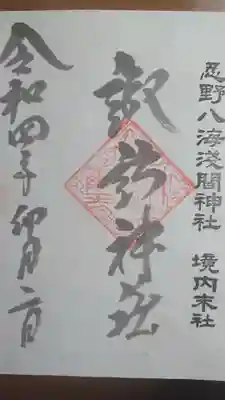 忍野八海淺間神社 境内末社
諏訪神社
令和四年 卯月二日